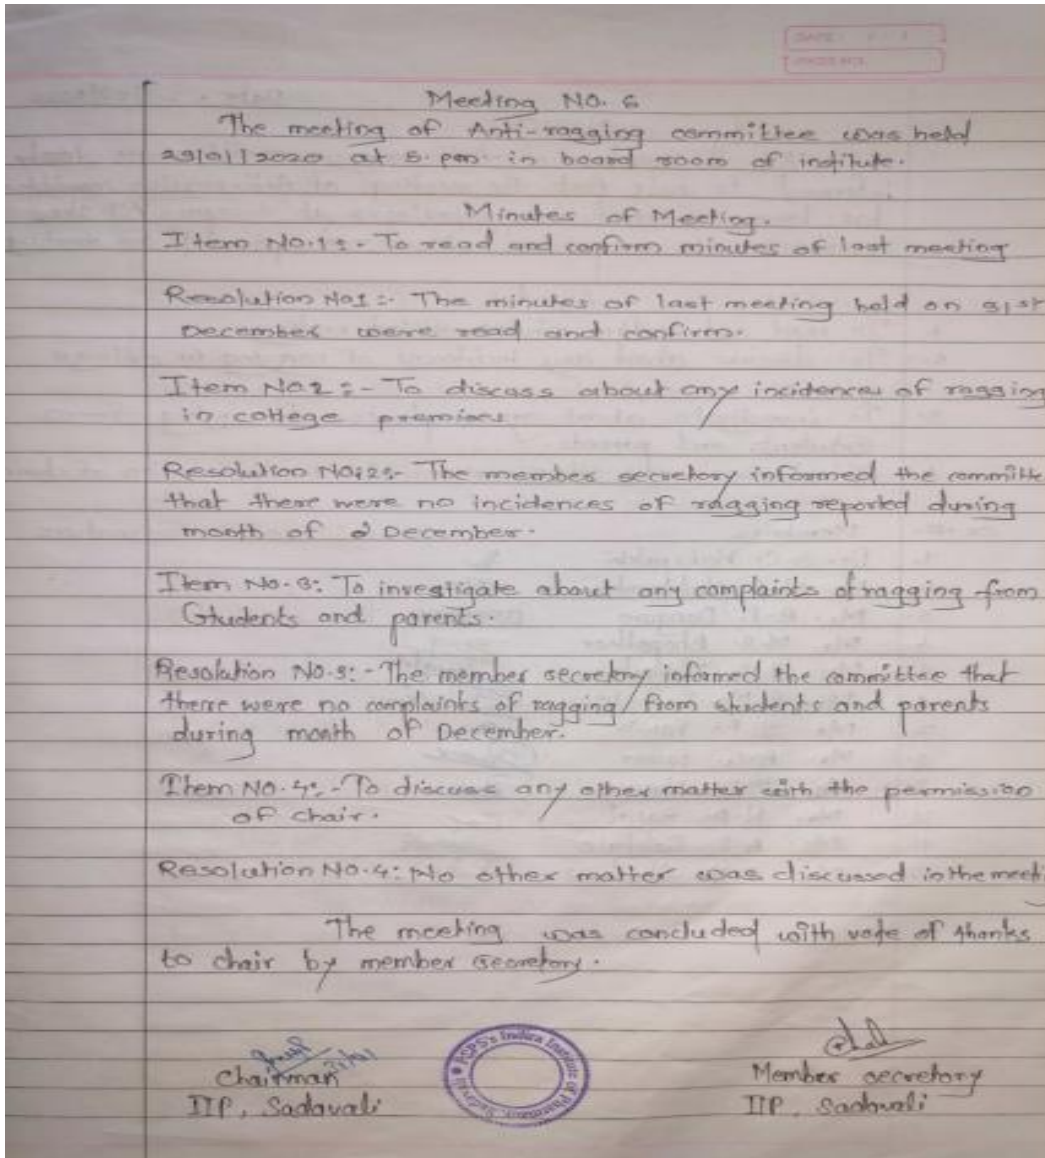 DATE: / /
PAGE NO.
Meeting NO. 6
The meeting of Anti-ragging committee was held
29/01/2020 at 5. pm. in board room of institute.
Minutes of Meeting.
Item No.1:- To read and confirm minutes of last meeting
Resolution No1:- The minutes of last meeting held on 31st
December were read and confirm.
Item No2:- To discuss about any incidences of ragging
in college premises
Resolution No:2:- The member secretory informed the committe
that there were no incidences of ragging reported during
month of December.
Item No.3: To investigate about any complaints of ragging from
Students and parents.
Resolution No.3:- The member secretory informed the committee that
there were no complaints of ragging/ from students and parents
during month of December.
Item NO.4:- To discuss any other matter with the permission
of chair.
Resolution No.4: No other matter was discussed in the meeti
The meeting was concluded with vote of thanks
to chair by member secretory.
PSPS's Indira Institute of Pharmacy, Sadavali
Chairman
Member secretory
IIP, Sadavali
IIP, Sadavali